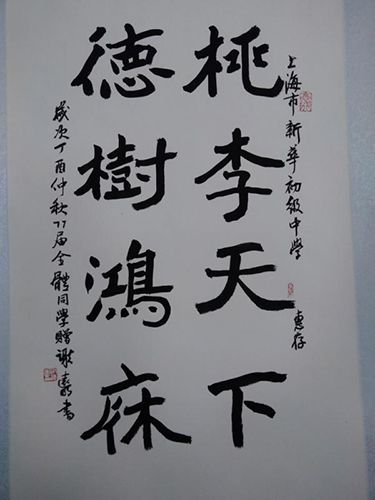 上海市新華初級中学 惠存
桃李天下
德樹鴻庥
歲次丁酉仲秋77届全體同学贈 謝書